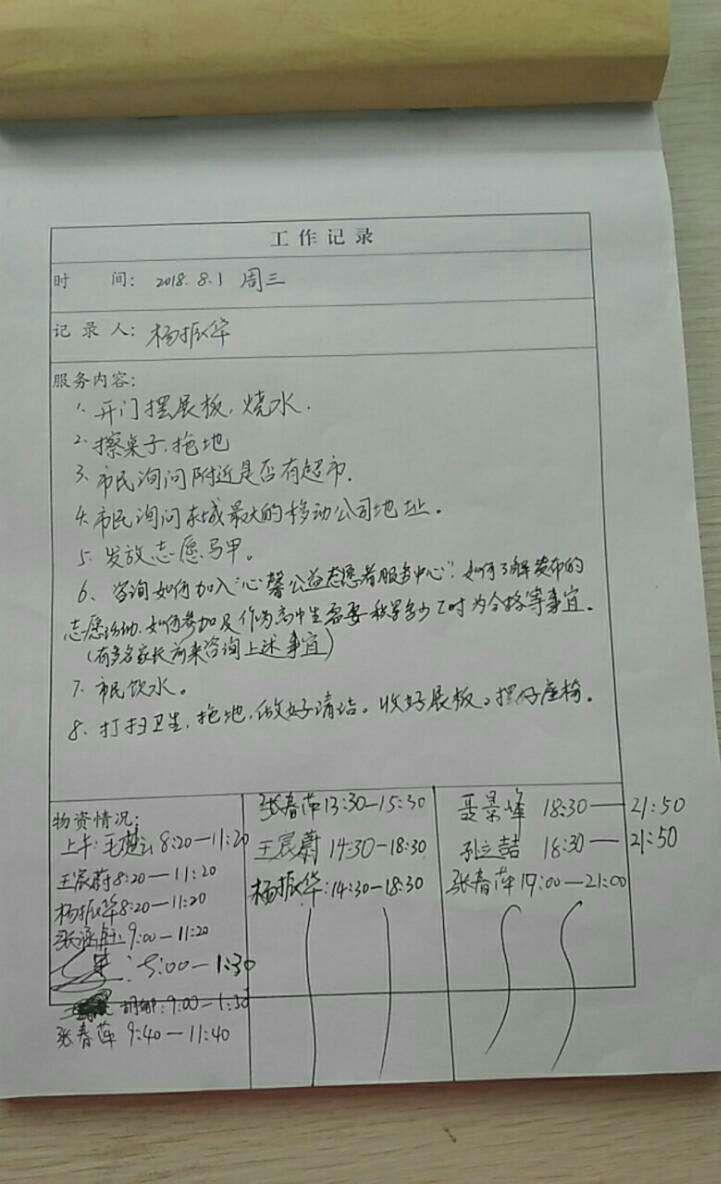 工作记录
时 间: 2018.8.1 周三
记录人: 杨振华
服务内容:
1. 开门摆展板,烧水.
2. 擦桌子,拖地
3. 市民询问附近是否有超市.
4. 市民询问东城最大的移动公司地址。
5. 发放志愿马甲。
6、咨询如何加入“心馨公益志愿者服务中心”?如何了解发布的
志愿活动,如何参加及作为高中生需要积累多少工时为合格等事宜。
(有多名家长前来咨询上述事宜)
7. 市民饮水。
8、打扫卫生,拖地,做好清洁。收好展板,摆好座椅。
物资情况:
上午: 8:20—11:20
王宸蔚 8:20—11:20
杨振华 8:20—11:20
9:00—11:20
: 5:00—1:30
: 9:00—1:30
张春萍 9:40—11:40
张春萍 13:30—15:30
王宸蔚 14:30—18:30
杨振华: 14:30—18:30
聂景峰 18:30—21:50
孙立喆 18:30—21:50
张春萍 19:00—21:00